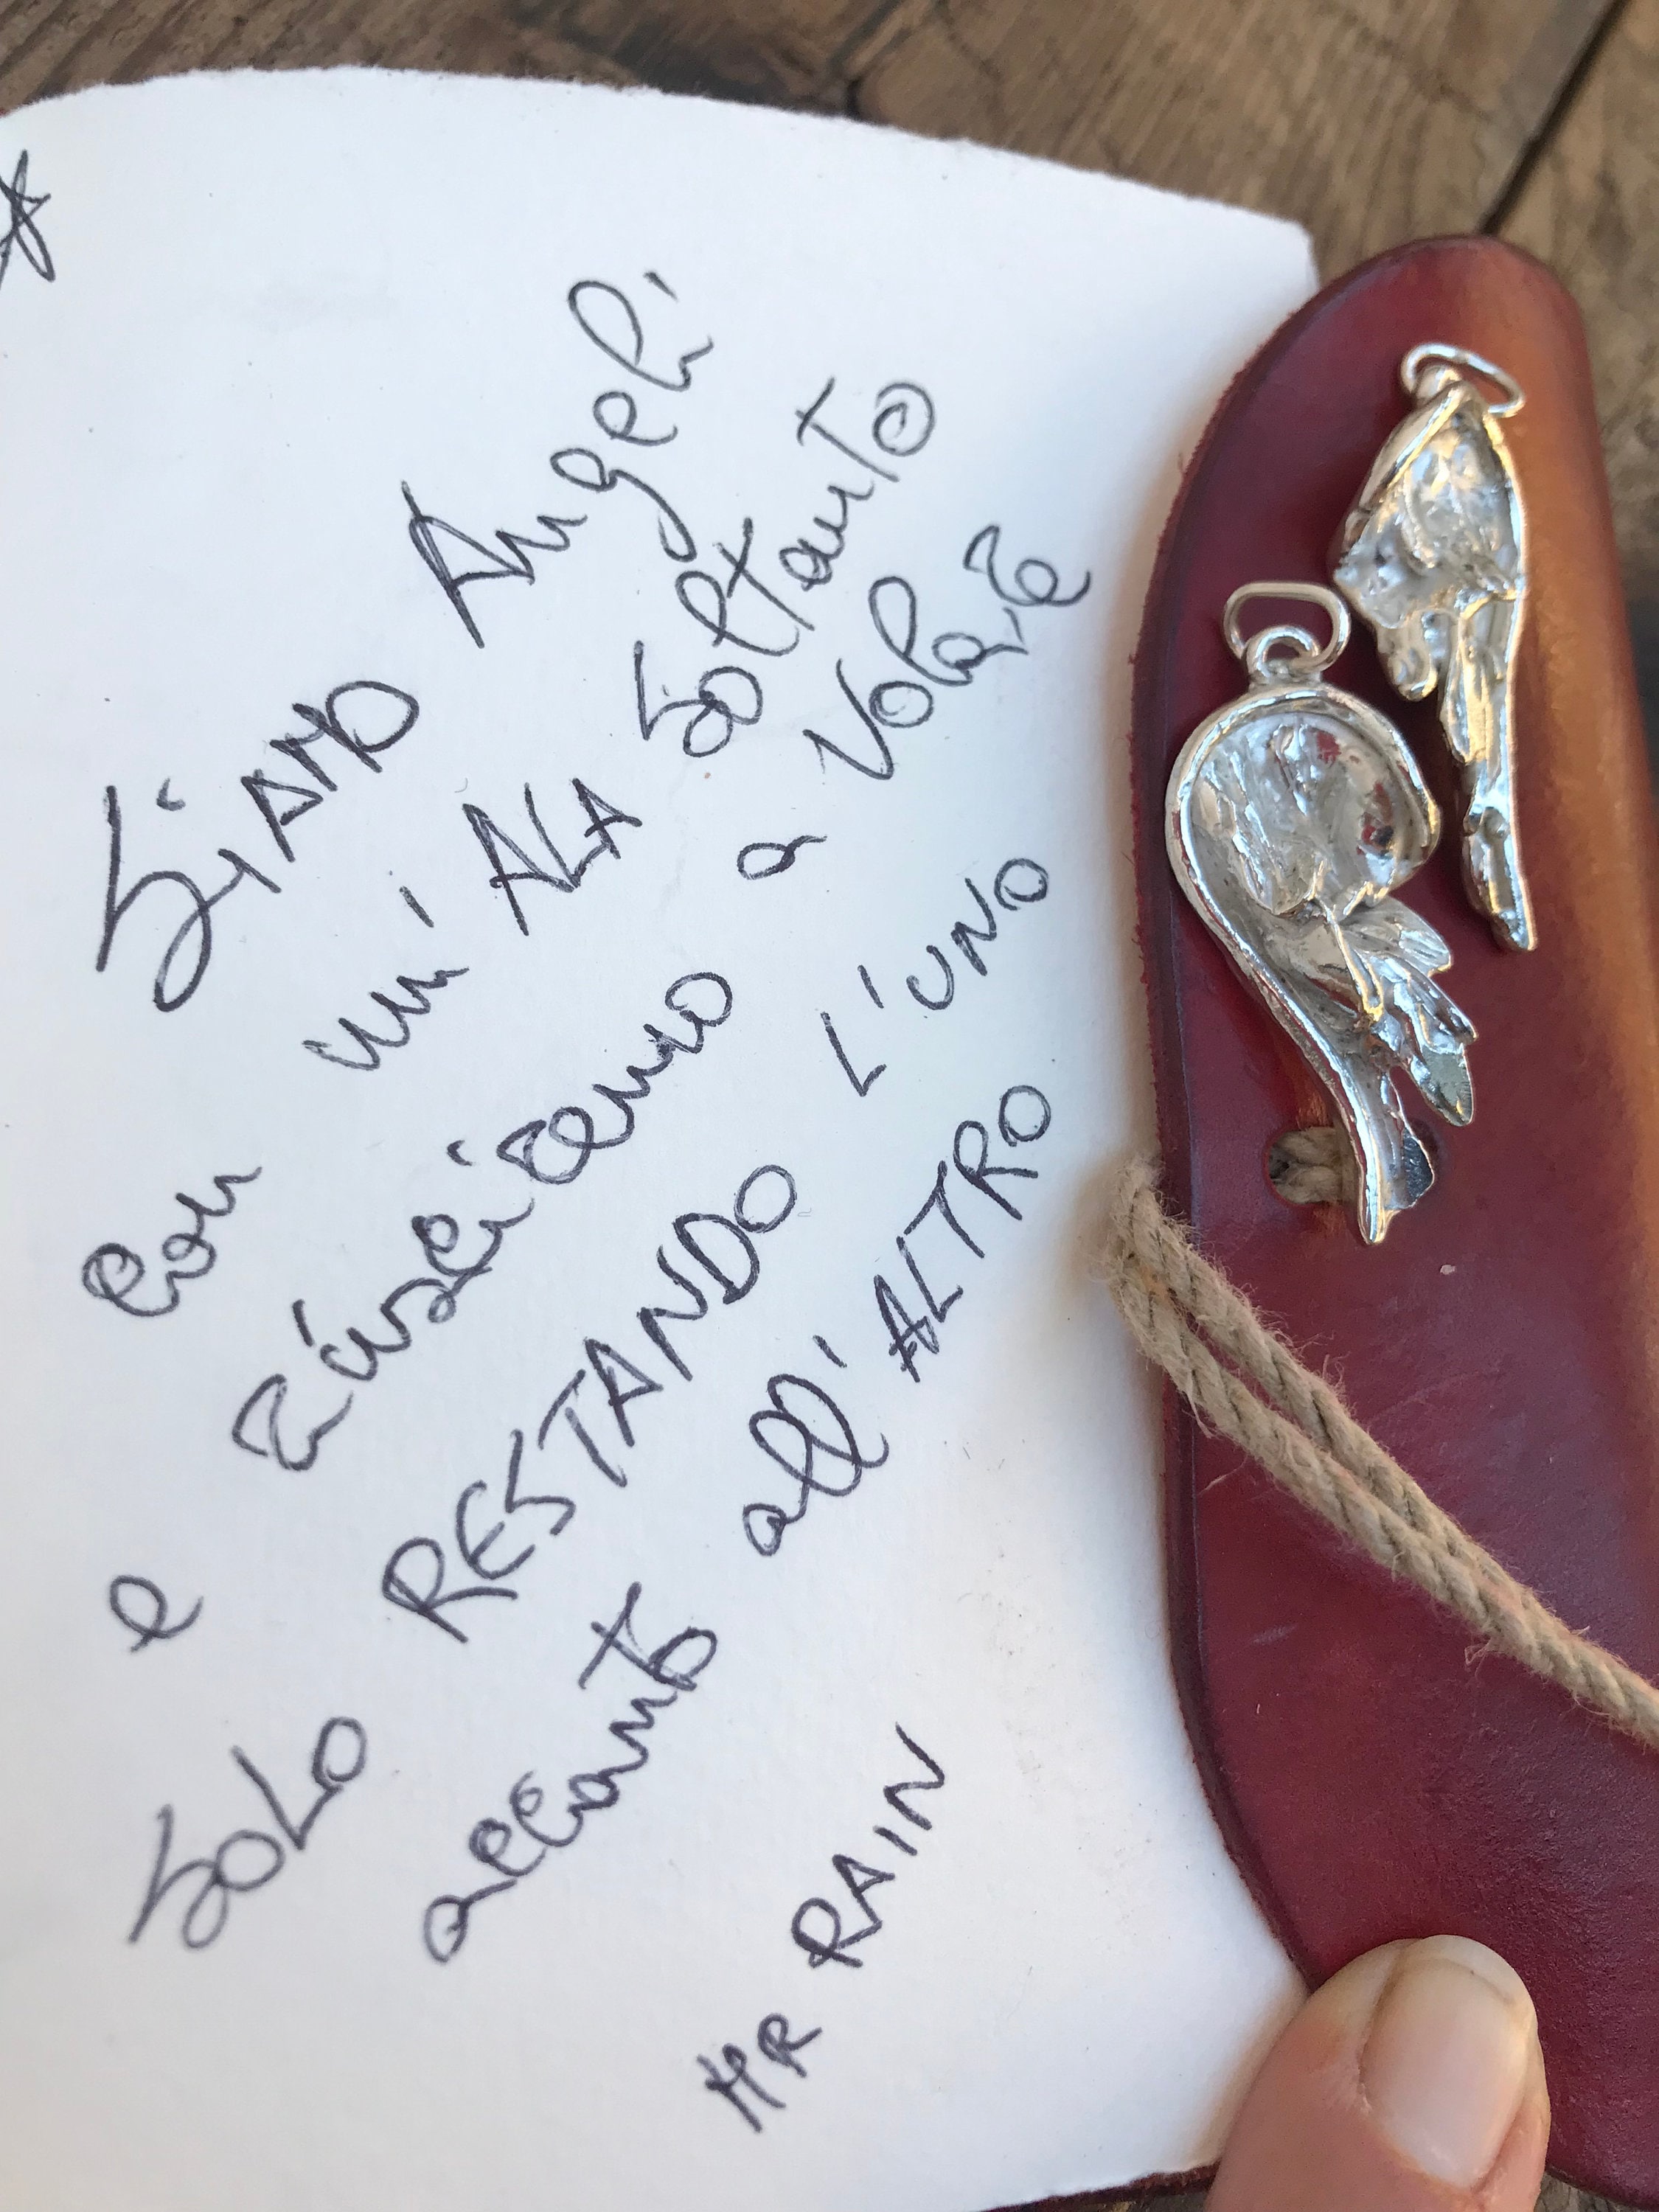 SiAMO Angeli
con un'ALA soltanto
e riusciremo a volare
SOLO RESTANDO L'UNO
accanto all'ALTRO
MR RAIN